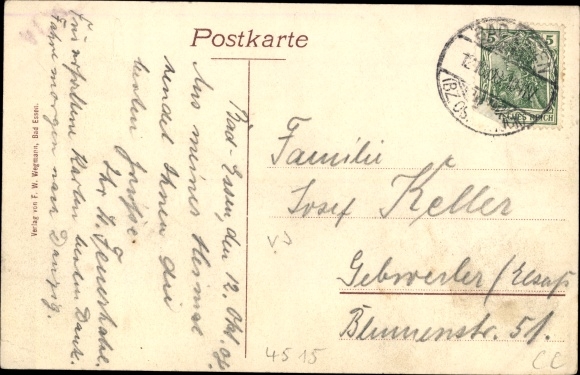 Postkarte
Bad-Essen, den 12. Okt. 09.
Aus meiner Heimat
sendet Ihnen die
besten Grüße.
Ihr H. Feuerhake.
Für erhaltene Karten besten Dank.
Fahre morgen nach Danzig.
Verlag von F. W. Wegmann, Bad Essen.
5 5
BAD ESSEN
(BZ. OS
REICH
Familie
Josef Keller
Gebweiler / Elsaß
Blumenstr. 51.
4515
CC